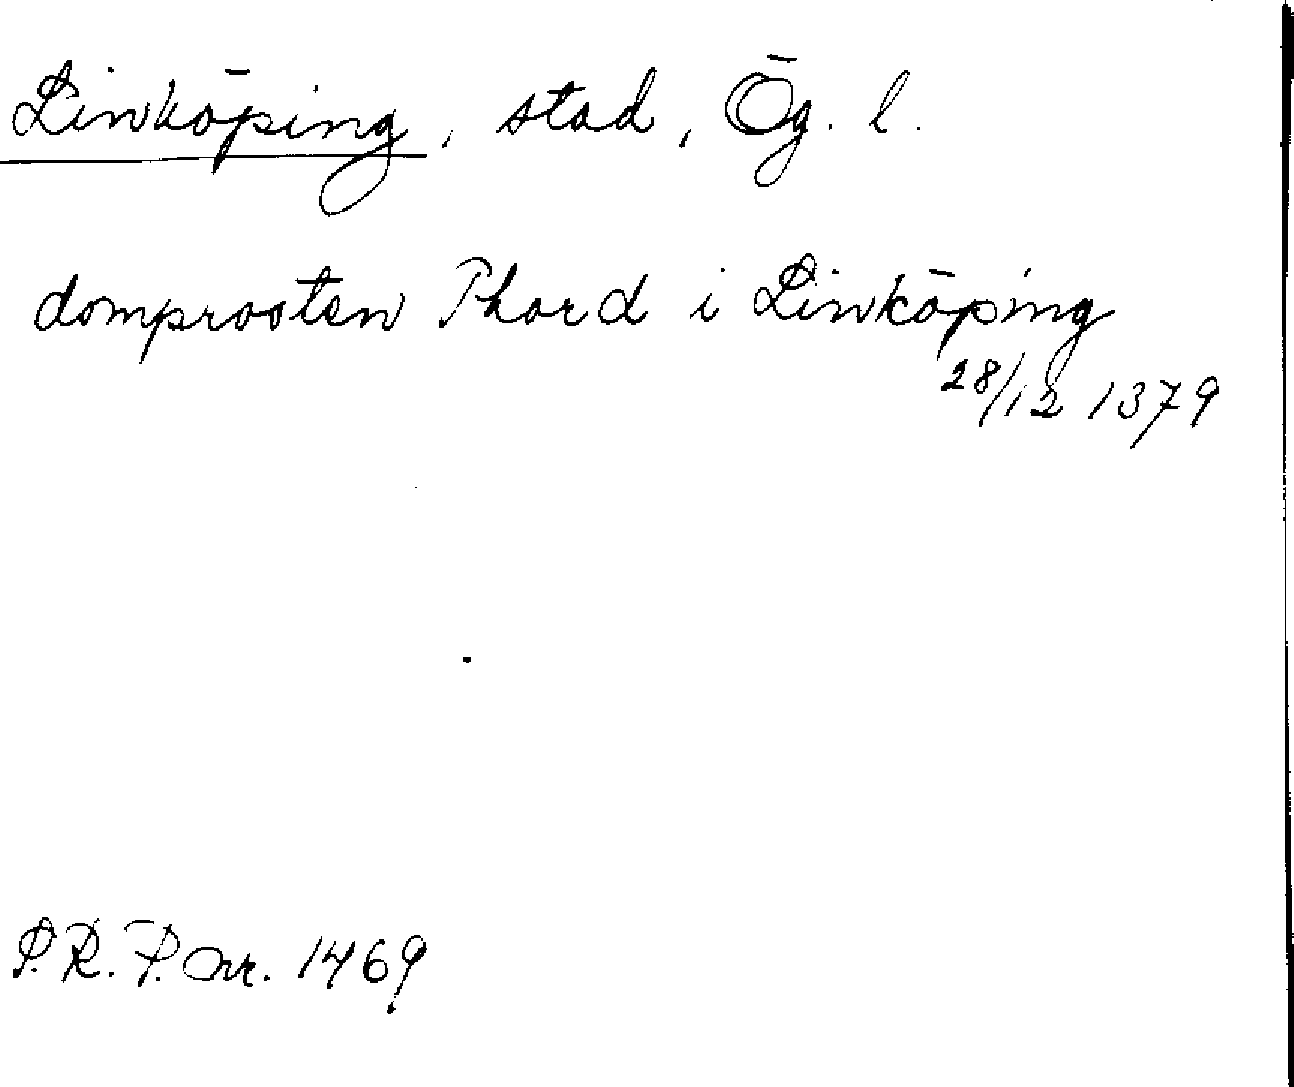 Linköping, stad, Ög. l.
domprosten Thord i Linköping
28/12 1379
S.R.P. nr. 1469